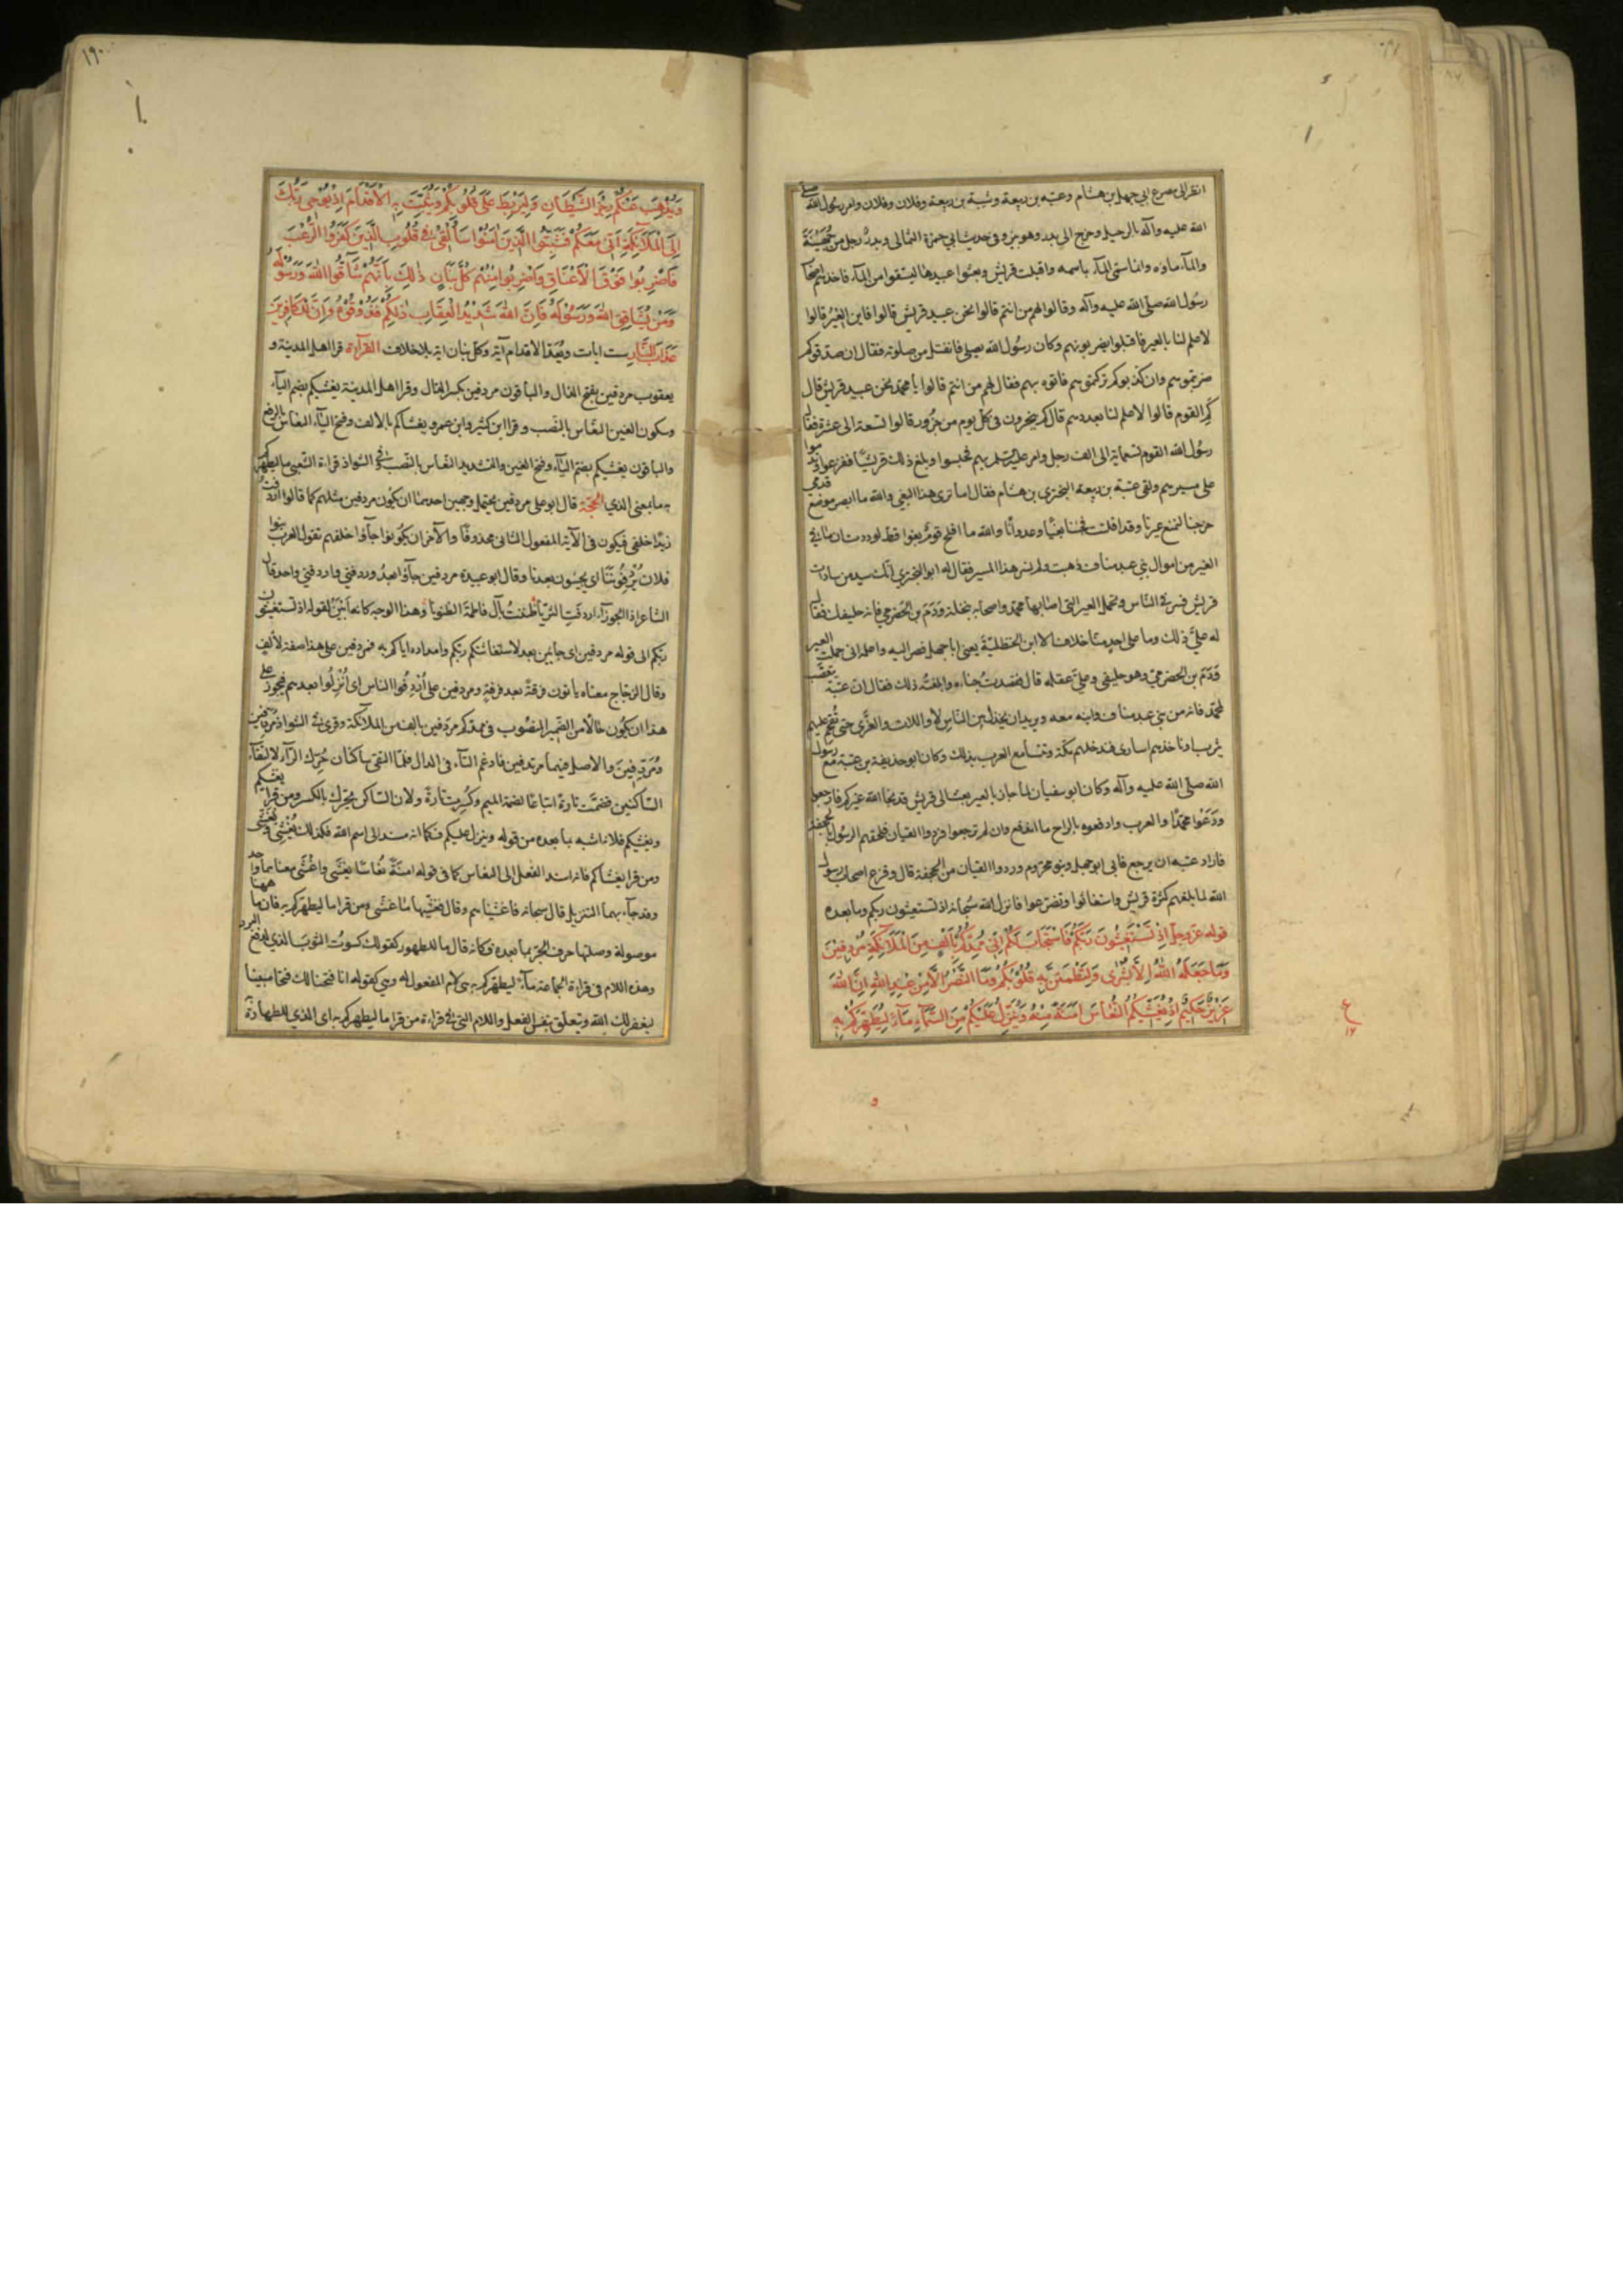 انظر الى مصرع ابي جهل بن هشام وعتبه بن ربيعة وشيبة بن ربيعة وفلان وفلان وامر رسول الله صلى
الله عليه وآله بالرحيل وخرج الى بدر وهو بئر وفي حديث ابي حمزة الثمالى وبدر رجل من جهينة
والماء ماؤه وانما سمى الماء باسمه واقبلت قريش وبعثوا عبيدها ليستقوا من الماء فاخذهم اصحاب
رسول الله صلى الله عليه وآله وقالوا لهم من انتم قالوا نحن عبيد قريش قالوا فاين العير قالوا
لا علم لنا بالعير فاقبلوا يضربونهم وكان رسول الله يصلى فانفتل من صلوته فقال ان صدقوكم
ضربتموهم وان كذبوكم تركتموهم فاتوه بهم فقال لهم من انتم قالوا يا محمد نحن عبيد قريش قال
كم القوم قالوا لا علم لنا بعددهم قال كم ينحرون في كل يوم من جزور قالوا تسعة الى عشرة فقال
رسول الله القوم تسعماية الى الف رجل وامر بهم فحبسوا وبلغ ذلك قريشا ففزعوا وندموا
على مسيرهم ولقى عتبة بن ربيعة البختري بن هشام فقال اما ترى هذا البغى والله ما ابصر موضع قدمي
خرجنا لنمنع عيرنا وقد افلتت فجئنا بغيا وعدوانا والله ما افلح قوم بغوا قط لوددت ان ما في
العير من اموال بني عبد مناف ذهبت ولم نسر هذا المسير فقال له ابو البختري انك سيد من سادات
قريش فسر في الناس وتحمل العير التي اصابها محمد واصحابه بنخلة ودم بن الحضرمي فانه حليفك فقال
له علي ذلك وما على احد منا خلاف الا ابن الحنظلية يعني ابا جهل فصر اليه واعلمه اني حملت العير
ودم بن الحضرمي وهو حليفي وعلي عقله قال فقصدت خباءه وابلغته ذلك فقال ان عتبة يتعصب
لمحمد فانه من بني عبد مناف وابنه معه ويريد ان يخذل بين الناس لا واللات والعزى حتى نقحم عليهم
يثرب او ناخذهم اسارى فندخلهم مكة وتتسامع العرب بذلك وكان ابو حذيفة بن عتبة مع رسول
الله صلى الله عليه وآله وكان ابو سفيان لما جاز بالعير بعث الى قريش قد نجا الله عيركم فارجعوا
ودعوا محمدا والعرب وادفعوه بالراح ما اندفع وان لم ترجعوا فردوا القيان فلحقهم الرسول بالجحفة
فاراد عتبه ان يرجع فابى ابو جهل وبنو مخزوم وردوا القيان من الجحفة قال وفزع اصحاب رسول
الله لما بلغهم كثرة قريش واستغاثوا وتضرعوا فانزل الله سبحانه اذ تستغيثون ربكم وما بعده
قوله عز وجل اذ تستغيثون ربكم فاستجاب لكم اني ممدكم بالف من الملائكة مردفين
وما جعله الله الا بشرى ولتطمئن به قلوبكم وما النصر الا من عند الله ان الله
عزيز حكيم اذ يغشيكم النعاس امنة منه وينزل عليكم من السماء ماء ليطهركم به
ع
١٦
١٩٠
ويذهب عنكم رجز الشيطان وليربط على قلوبكم ويثبت به الاقدام اذ يوحى ربك
الى الملائكة اني معكم فثبتوا الذين امنوا سالقى في قلوب الذين كفروا الرعب
فاضربوا فوق الاعناق واضربوا منهم كل بنان ذلك بانهم شاقوا الله ورسوله
ومن يشاقق الله ورسوله فان الله شديد العقاب ذلكم فذوقوه وان للكافرين
عذاب النار ست ايات ويثبت به الاقدام آية وكل بنان اية بلا خلاف القرآءة قرا اهل المدينة و
يعقوب مردفين بفتح الدال والباقون مردفين بكسر الدال وقرا اهل المدينة يغشيكم بضم الياء
وسكون الغين النعاس بالنصب وقرا ابن كثير وابن عمرو يغشاكم بالالف وفتح الياء النعاس بالرفع
والباقون يغشيكم بضم الياء وفتح الغين والتشديد النعاس بالنصب في الشواذ قراءة الشعبي ما ليطهركم
به ما بمعنى الذي الحجة قال ابو على مردفين يحتمل وجهين احدهما ان يكون مردفين مثلهم كما قالوا اردفت
زيدا خلفى فيكون في الآية المفعول الثانى محذوفا والآخر ان يكونوا جاؤا خلفهم تقول العرب بنوا
فلان يردفوننا اي يجيئون بعدنا وقال ابو عبيدة مردفين جاؤا بعد وردفني واردفني واحد قال
الشاعر اذا الجوزاء اردفت الثريا ظننت بآل فاطمة الظنونا وهذا الوجه كانه ابين لقوله اذ تستغيثون
ربكم الى قوله مردفين اى جايين بعد لاستغاثتكم ربكم وامداده اياكم به فمردفين على هذا صفة لالف
وقال الزجاج معناه ياتون فرقة بعد فرقة ومردفين على اردفوا الناس اى انزلوا بعدهم فيجوز على
هذا ان يكون حالا من الضمير المنصوب في ممدكم مردفين بالف من الملائكة وقرئ في الشواذ مردفين
ومردفين والاصل فيهما مرتدفين فادغم التاء في الدال فلما التقى ساكنان حرك الراء لالتقاء
الساكنين فضمت تارة اتباعا لضمة الميم وكسرت تارة ولان الساكن يحرك بالكسر ومن قرا يغشيكم
ويغشيكم فلانه اشبه بما بعده من قوله وينزل عليكم فكما انه مسند الى اسم الله فكذلك يغشى ويغشى
ومن قرا يغشاكم فانه اسند الفعل الى النعاس كما في قوله امنة نعاسا يغشى واغشى معناهما واحد
وقد جآء بهما التنزيل قال سبحانه فاغشيناهم وقال فغشيها ما غشى ومن قرا ما ليطهركم به فان ما ههنا
موصولة وصلتها حرف الجر بما بعده فكانه قال ما للطهور كقولك كسوت الثوب الذي لدفع البرد
وهذه اللام في قراءة الجماعة ماء ليطهركم به هي كلام المفعول له وهي كقوله انا فتحنا لك فتحا مبينا
ليغفر لك الله وتتعلق بنفس الفعل واللام التي في قراءة من قرا ما ليطهركم به اى الذي للطهارة